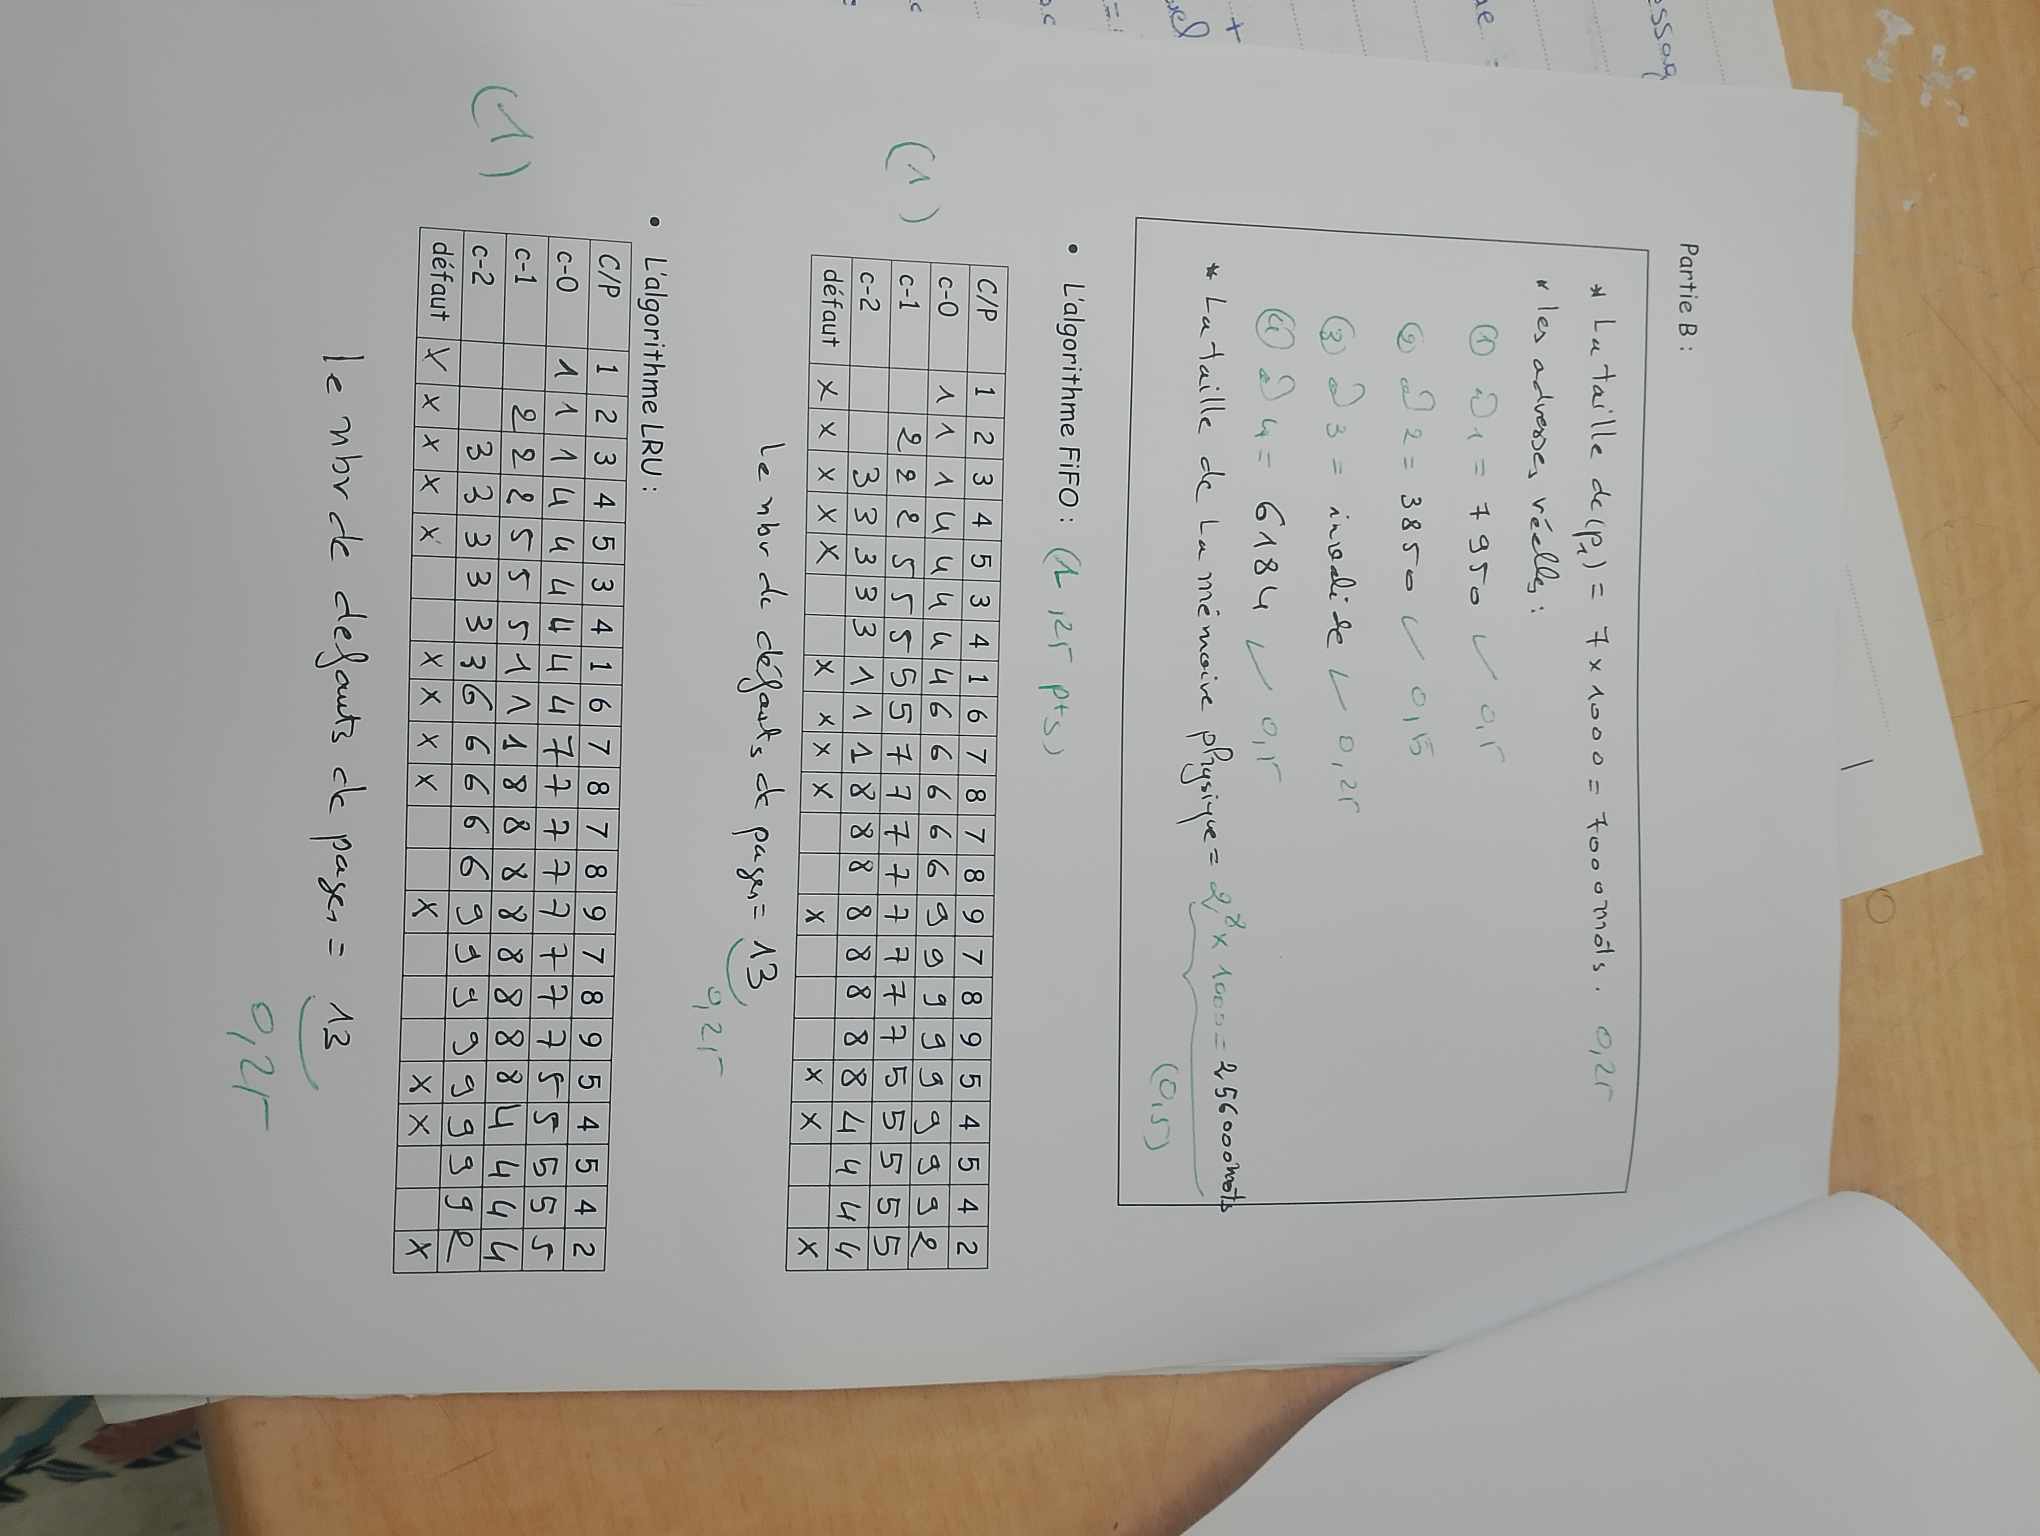 Partie B :
* La taille de (P1) = 7 x 1000 = 7000 mots. 0,25
* les adresses réelles :
(1) a) 1 = 7950 ✓ 0,5
(2) a) 2 = 3850 ✓ 0,5
(3) a) 3 = invalide ✓ 0,25
(4) a) 4 = 6184 ✓ 0,5
* La taille de La mémoire physique = 2^8 x 1000 = 256000 mots
(0,5)
• L'algorithme FiFO : (1,25 pts)
(1)
C/P 1 2 3 4 5 3 4 1 6 7 8 7 8 9 7 8 9 5 4 5 4 2
c-0 1 1 1 4 4 4 4 4 6 6 6 6 6 9 9 9 9 9 9 9 9 2
c-1 2 2 2 5 5 5 5 5 7 7 7 7 7 7 7 7 5 5 5 5 5
c-2 3 3 3 3 3 1 1 1 8 8 8 8 8 8 8 8 4 4 4 4
défaut X X X X X X X X X X X X X
le nbr de défauts de pages = 13
0,25
• L'algorithme LRU :
(1)
C/P 1 2 3 4 5 3 4 1 6 7 8 7 8 9 7 8 9 5 4 5 4 2
c-0 1 1 1 4 4 4 4 4 4 7 7 7 7 7 7 7 7 5 5 5 5 5
c-1 2 2 2 5 5 5 1 1 1 8 8 8 8 8 8 8 8 4 4 4 4
c-2 3 3 3 3 3 3 6 6 6 6 6 9 9 9 9 9 9 9 9 2
défaut X X X X X X X X X X X X X
le nbr de defauts de pages = 13
0,25